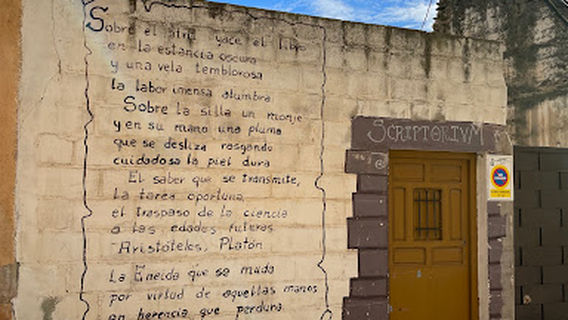 Sobre el atril yace el libro
en la estancia oscura
y una vela temblorosa
la labor inmensa alumbra
Sobre la silla un monje
y en su mano una pluma
que se desliza rasgando
cuidadosa la piel dura
El saber que se transmite,
la tarea oportuna
el traspaso de la ciencia
a las edades futuras
Aristóteles, Platón
La Eneida que se muda
por virtud de aquellas manos
en herencia que perdura
SCRIPTORIVM